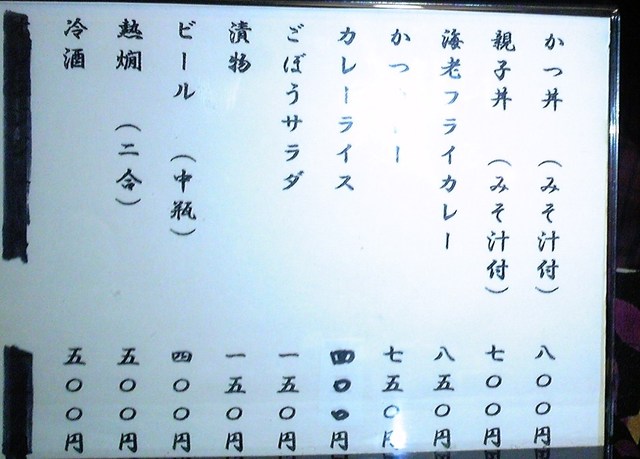 かつ丼 (みそ汁付) 八〇〇円
親子丼 (みそ汁付) 七〇〇円
海老フライカレー 八五〇円
かつ ー 七五〇円
カレーライス 四〇〇円
ごぼうサラダ 一五〇円
漬物 一五〇円
ビール (中瓶) 四〇〇円
熱燗 (二合) 五〇〇円
冷酒 五〇〇円